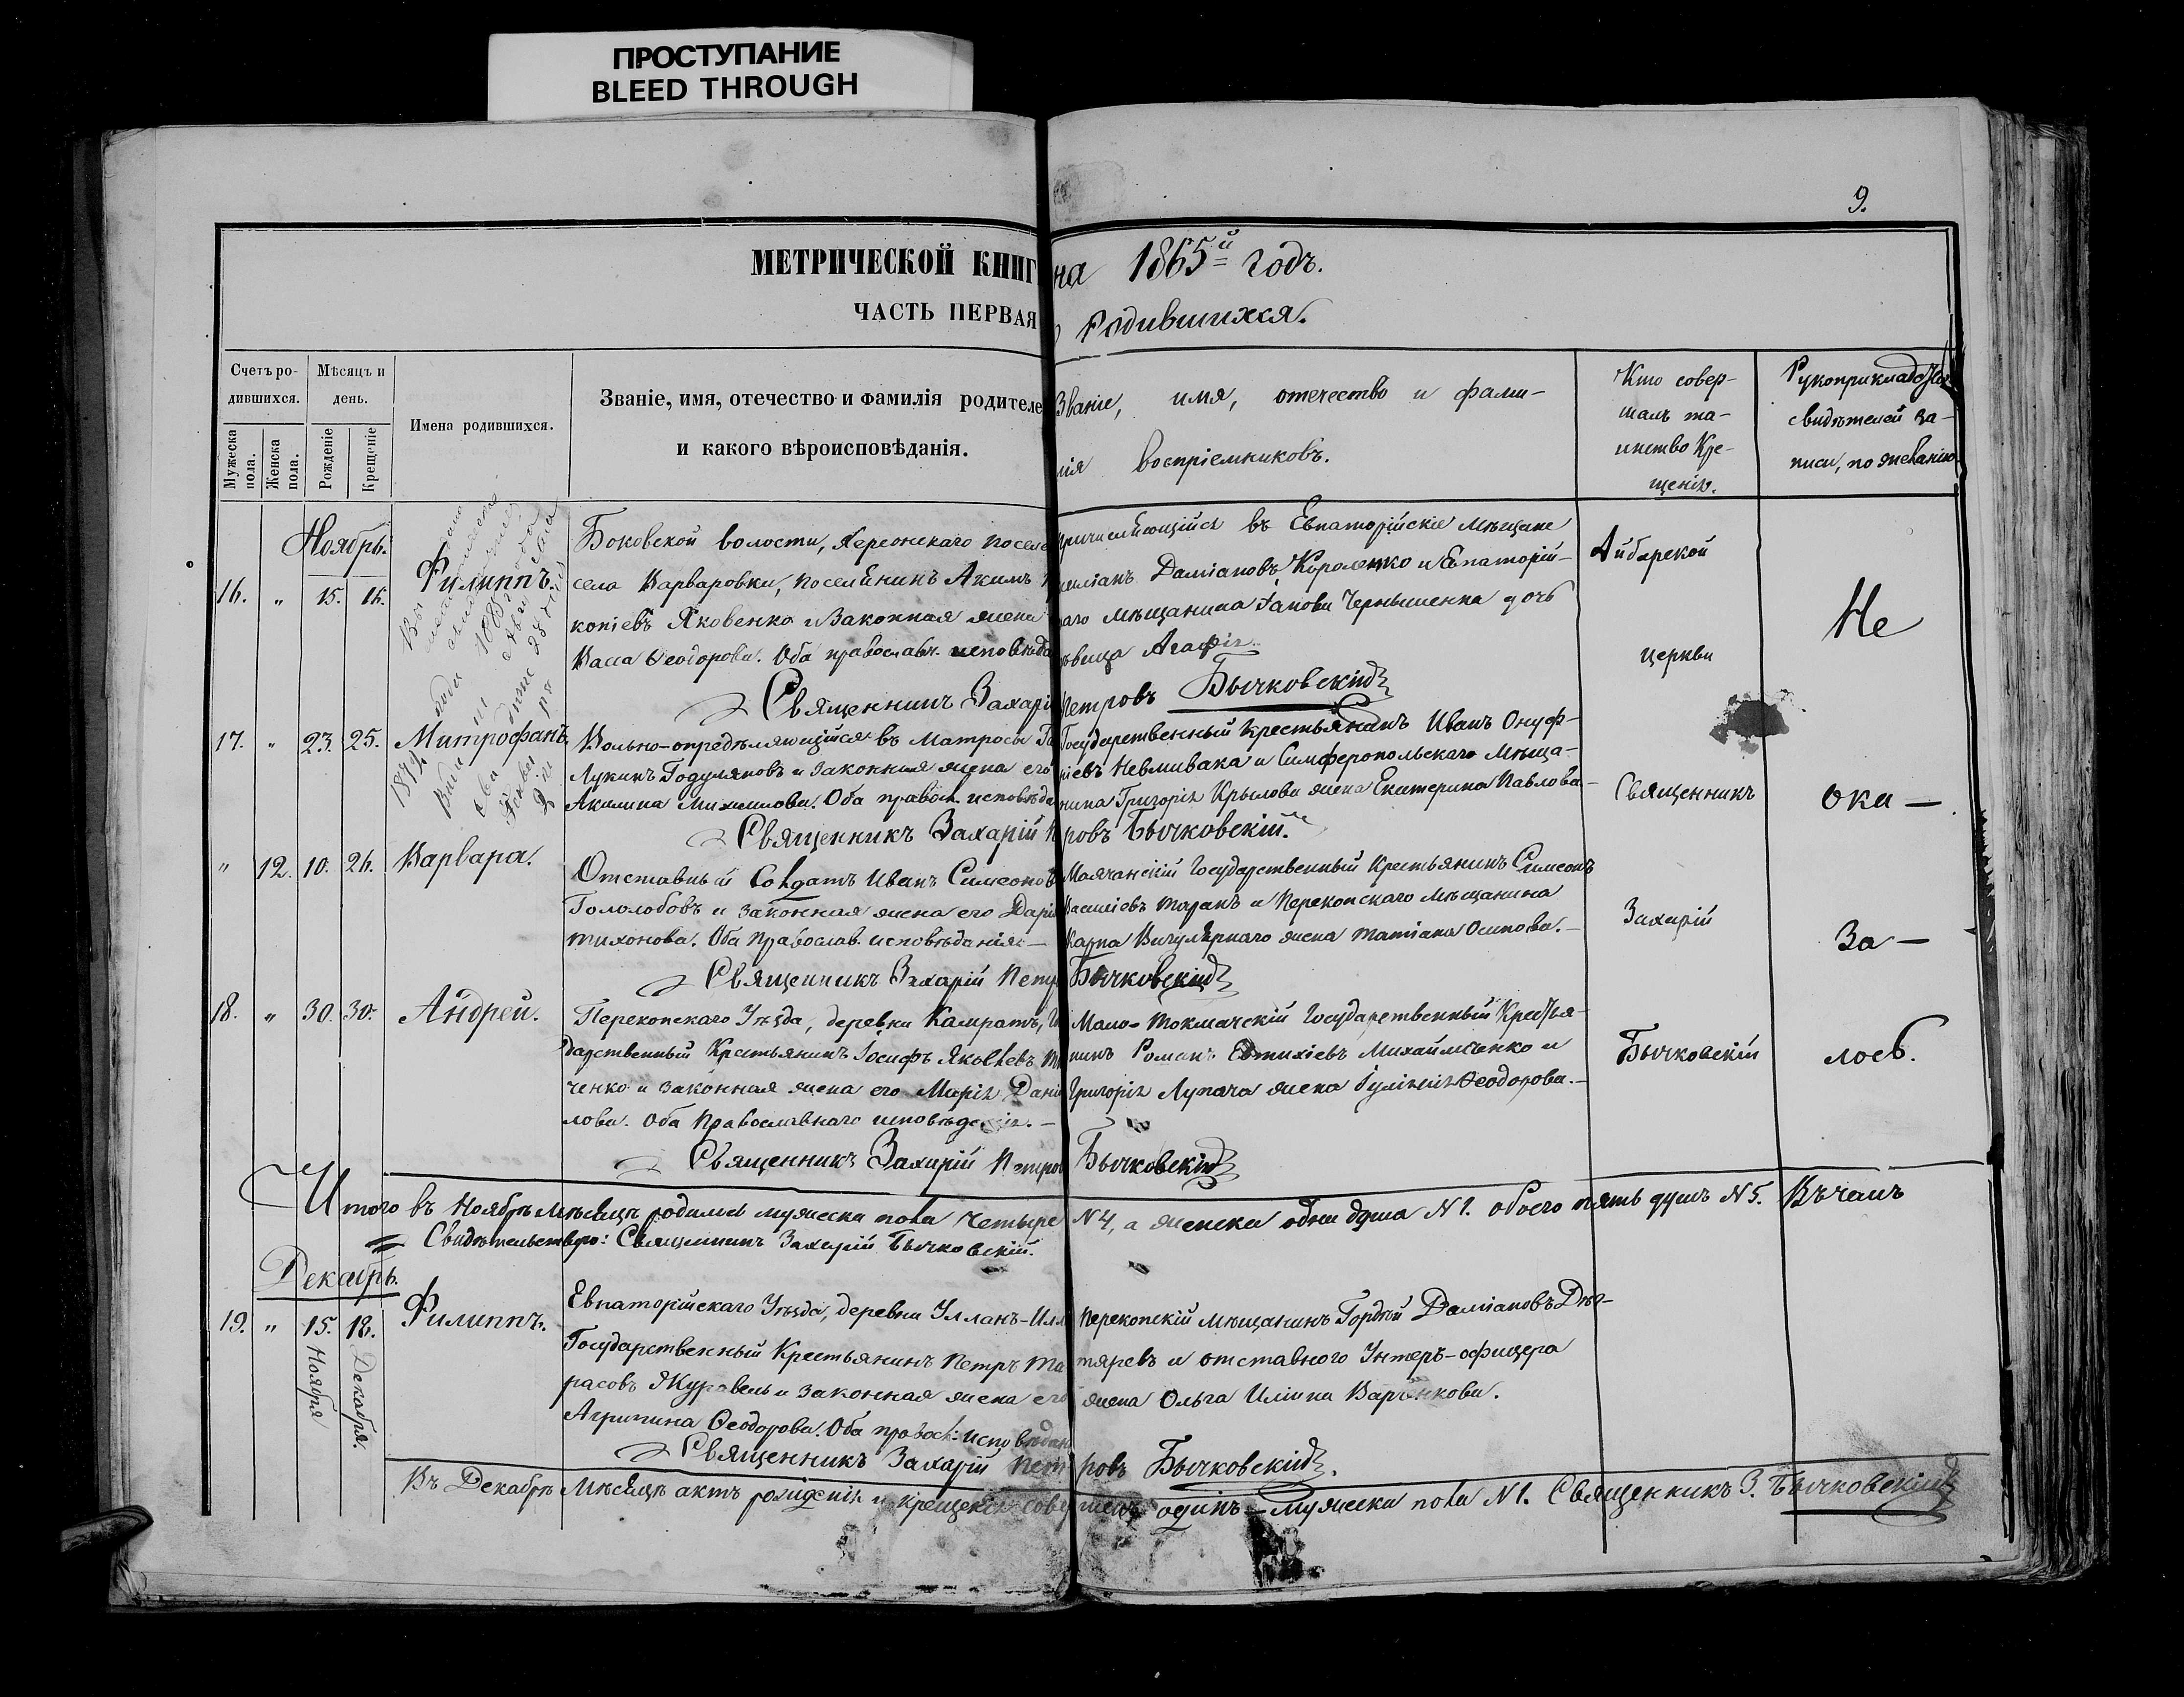 ПРОСТУПАНИЕ
BLEED THROUGH
9.
МЕТРИЧЕСКОЙ КНИГ
на 1865й годъ.
ЧАСТЬ ПЕРВАЯ
Родившихся.
Счетъ ро-
дившихся.
Мужеска
пола.
Женска
пола.
Мѣсяцъ и
день.
Рожденіе
Крещеніе
Имена родившихся.
Званіе, имя, отечество и фамилія родителе
и какого вѣроисповѣданія.
Званіе, имя, отечество и фами-
лія воспріемниковъ.
Кто совер-
шалъ та-
инство Кре-
щенія.
Рукоприкладство
свидѣтелей за-
писи, по желанію
Ноябрь.
16. " 15. 16. Филиппъ.
Боковской волости, Херсонскаго поселе
села Варваровки, поселенинъ Акимъ
копіевъ Яковенко и законная жена
Васса Ѳеодорова. Оба православ. исповѣда
Священникъ Захарі
въ Евпаторійскіе мѣщане
Даміановъ Короленко и Евпаторій-
мѣщанина Чернышенка дочь
вица Агафія.
Петровъ Бычковскій
17. " 23. 25. Митрофанъ.
Вольно-опредѣляющійся въ матросы
Лукинъ Годуляновъ и законная жена его
Акилина Михайлова. Оба правосл. исповѣда
Священникъ Захарій
Государственный крестьянинъ Иванъ Онуф-
ріевъ Невмивака и Симферопольскаго мѣща-
нина Григорія Крылова жена Екатерина Павлова-
ровъ Бычковскій.
" 12. 10. 26. Варвара.
Отставный Солдатъ Иванъ Симеонов
Гололобовъ и законная жена его Дарі
Тихонова. Оба Православ. исповѣданія-
Священникъ Захарій Петр
Маячанскій Государственный Крестьянинъ Симеонъ
Василіевъ Таранъ и Перекопскаго мѣщанина
Карпа жена Татіана Осипова.-
Бычковскій
18. " 30. 30. Андрей.
Перекопскаго Уѣзда, деревни Камратъ,
дарственный Крестьянинъ Іосифъ Яковлевъ
ченко и законная жена его Марія Дані
лова. Оба Православнаго исповѣданія. -
Священникъ Захарій Петров
Мало-Токмачскій Государственный Крестья-
нинъ Романъ Евтихіевъ Михайличенко и
Григорія Лупача жена Іуліанія Ѳеодорова.-
Бычковскій
Айбарской
церкви
Священникъ
Захарій
Бычковскій
Не
ока-
за-
лось.
Итого въ Ноябрѣ мѣсяцѣ родилось мужеска пола четыре N4, а женска одна душа N1. обоего пять душъ N5. Въ чемъ
Свидѣтельствую: Священникъ Захарій Бычковскій.
Декабрь.
19. " 15. Ноября 18. Декабря. Филиппъ.
Евпаторійскаго Уѣзда, деревни Улланъ-
Государственный Крестьянинъ Петръ Та
расовъ Журавель и законная жена его
Агрипина Ѳеодорова. Оба правосл: исповѣдан
Священникъ Захарій Пет
Перекопскій мѣщанинъ Гордѣй Даміановъ Дѣг-
тяревъ и отставного Унтеръ-офицера
жена Ольга Иліина Варченкова.
ровъ Бычковскій.
Въ Декабрѣ мѣсяцѣ актъ рожденія и крещенія совершенъ одинъ - мужеска пола N1. Священникъ З. Бычковскій